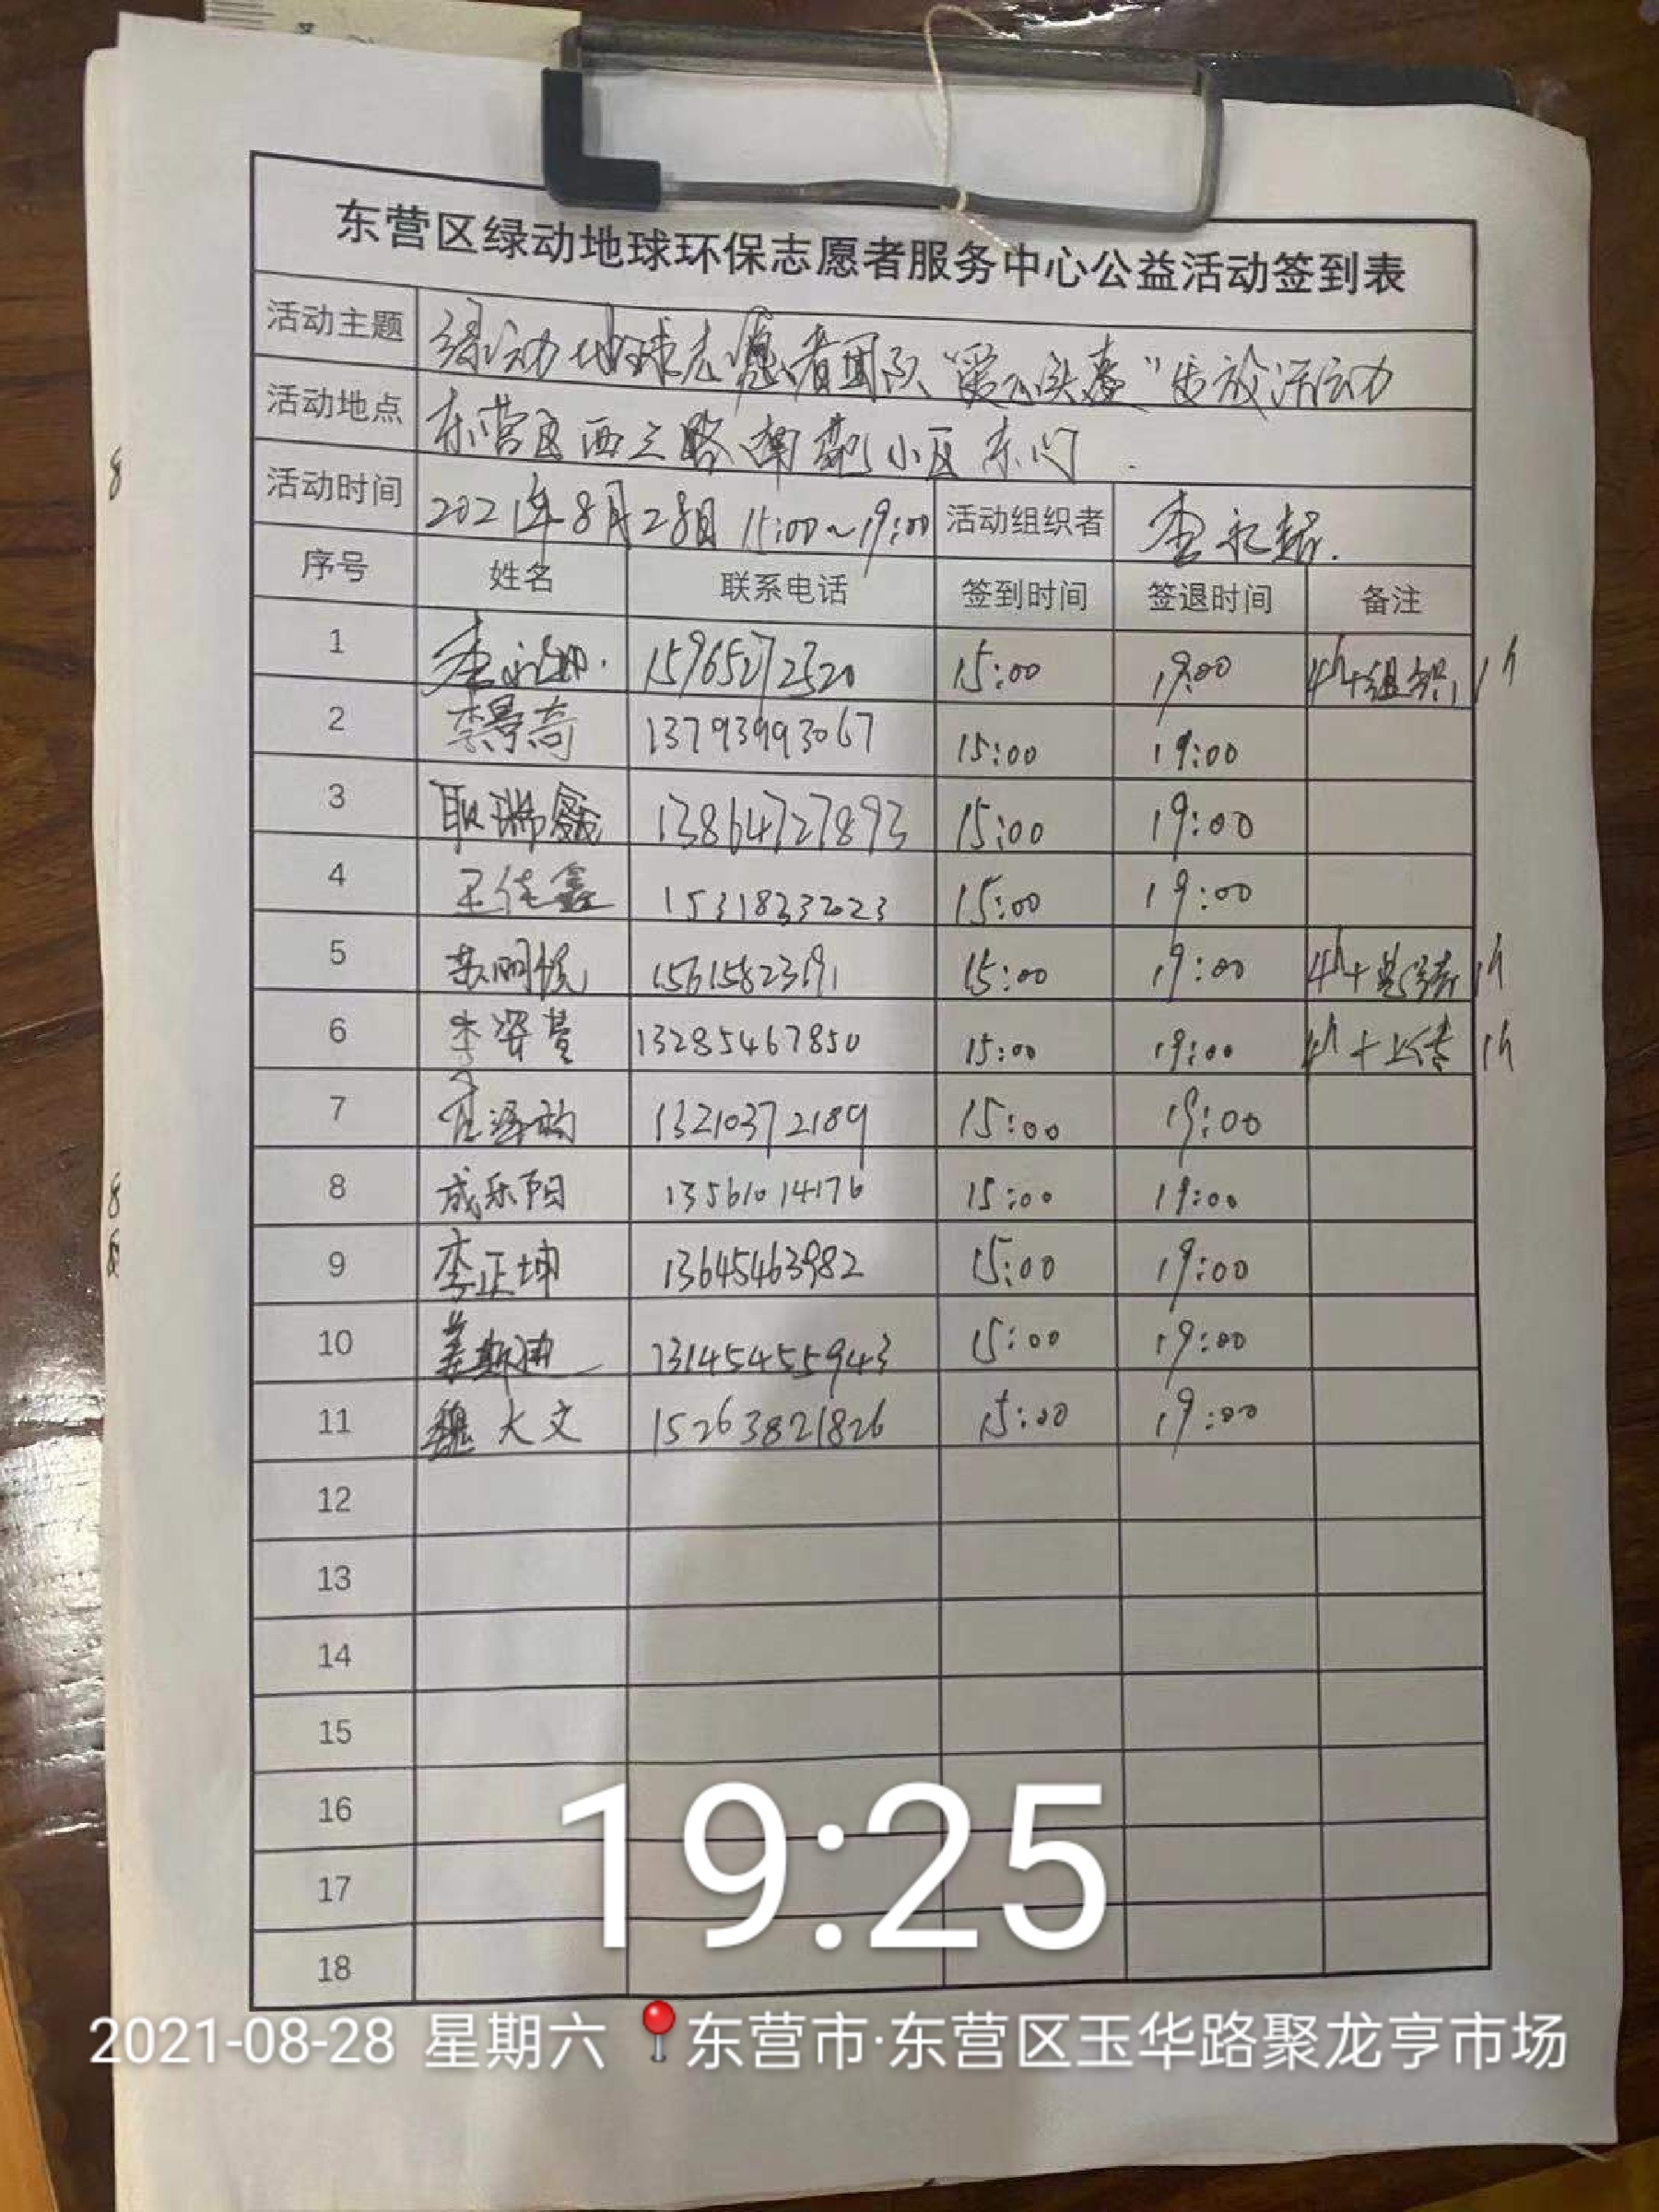 东营区绿动地球环保志愿者服务中心公益活动签到表
活动主题 绿动地球志愿者团队“爱心头盔”发放活动
活动地点 东营区西三路 小区东门
活动时间 2021年8月28日 15:00~19:00 活动组织者 李
序号 姓名 联系电话 签到时间 签退时间 备注
1 李 15965272520 15:00 19:00 4h+组织1h
2 李景奇 13793993067 15:00 19:00
3 耿瑞 13864727893 15:00 19:00
4 王佳鑫 15318232023 15:00 19:00
5 苏明悦 15615823191 15:00 19:00 4h+总结1h
6 李姿萱 13285467850 15:00 19:00 4h+上传1h
7 13210372189 15:00 19:00
8 成乐阳 13561014176 15:00 19:00
9 李正坤 13645463982 15:00 19:00
10 姜斯迪 13145455943 15:00 19:00
11 魏大文 15263821826 15:00 19:00
12
13
14
15
16
17
18
19:25
2021-08-28 星期六 东营市·东营区玉华路聚龙亨市场